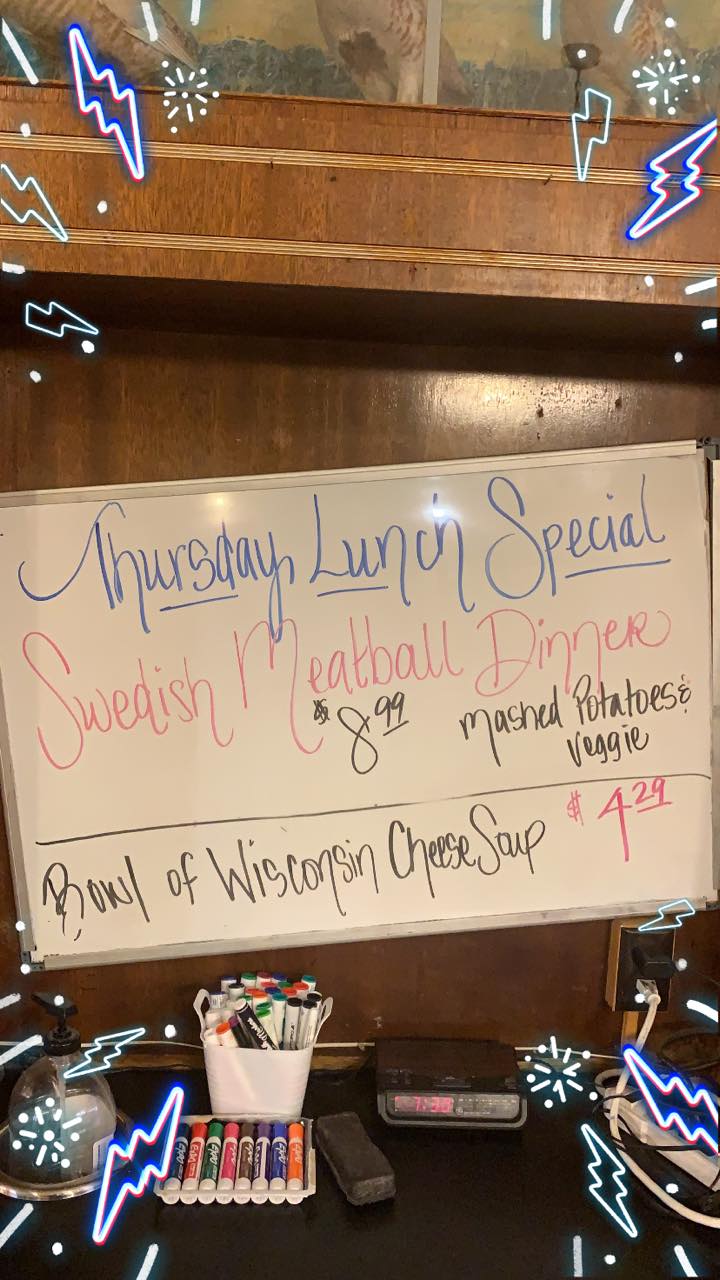 Thursday Lunch Special
Swedish Meatball Dinner
$8.99
Mashed Potatoes &
Veggie
Bowl of Wisconsin Cheese Soup $4.29
EXPO EXPO EXPO EXPO EXPO EXPO EXPO EXPO